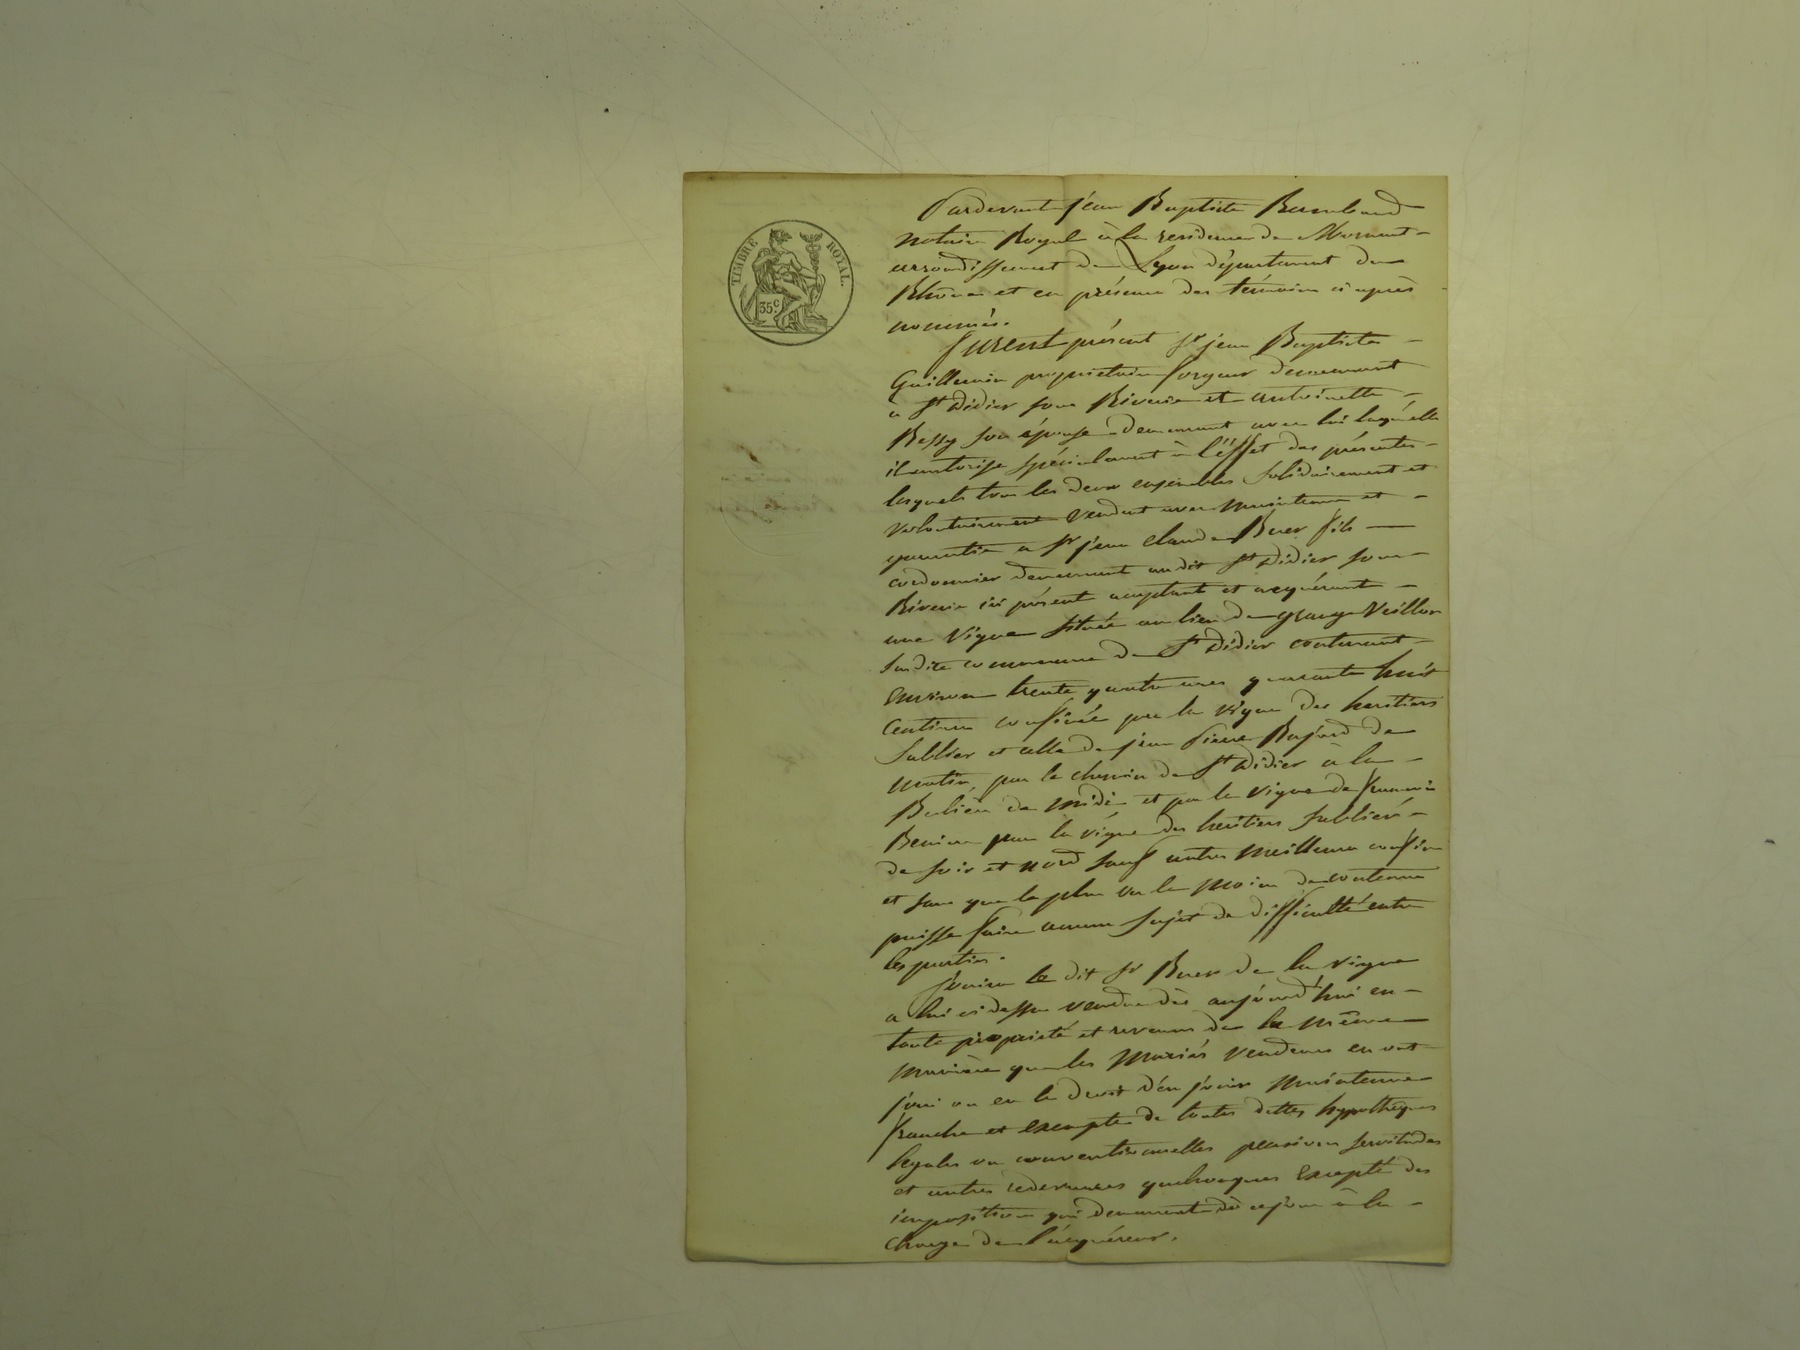 TIMBRE ROYAL.
35.c
Pardevant jean Baptiste
notaire Royal à la residence de Mornant
arrondissement de Lyon département du
Rhône et en présence des témoins ci après
nommés.
furent présent sr jean Baptiste
Guillermin propriétaire forgeur demeurant
à St Didier sous Riverie et antoinette
Bessy son épouse demeurant avec lui laqu'elle
il autorise spécialement à l'éffet des présentes
lesquels tous les deux ensembles solidairement et
volontairement vendent avec maintenue et
garantie a sr jean Claude fils
cordonnier demeurant audit St Didier sous
Riverie ici présent acceptant et acquérant
une vigne située au lieu de grange Veillon
susdite commune de St Didier contenant
environ trente quatre ares quarante huit
centiares confinée par la vigne des heritiers
Sublier et celle de jean Pierre de
matin, par le chemin de St Didier à la
de midi et par la vigne de francois
par la vigne des heritiers Subliér
de soir et nord sauf autres meilleurs confins
et sans que le plus ou le moins de contenue
puisse faire aucun sujet de difficulté entre
les parties.
jouira le dit sr de la vigne
a lui ci dessus vendue dès aujourd'hui en
toute propriété et revenus de la même
manière que les mariés vendeurs en ont
joui ou eu le droit d'en jouir maintenue
franche et exempte de toutes dettes hypothèques
legales ou conventionnelles pensions servitudes
et autres redevances quelconques excepté des
impositions qui demeurent dès ce jour à la
charge de l'acquéreur.